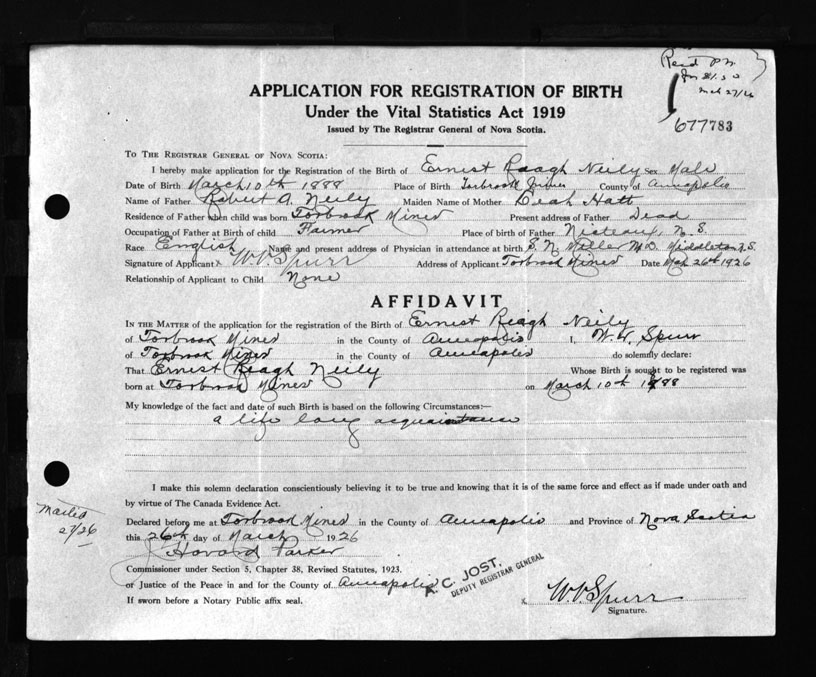 Recd
677783
APPLICATION FOR REGISTRATION OF BIRTH
Under the Vital Statistics Act 1919
Issued by The Registrar General of Nova Scotia.
TO THE REGISTRAR GENERAL OF NOVA SCOTIA:
I hereby make application for the Registration of the Birth of Ernest Reagh Neily Sex Male
Date of Birth March 10th 1888 Place of Birth Torbrook Mines County of Annapolis
Name of Father Robert A. Neily Maiden Name of Mother Leah Hatt
Residence of Father when child was born Torbrook Mines Present address of Father Dead
Occupation of Father at Birth of child Farmer Place of birth of Father Nictaux, N. S.
Race English Name and present address of Physician in attendance at birth S. N. Miller M.D. Middleton N.S.
Signature of Applicant x W V Spurr Address of Applicant Torbrook Mines Date Mar 26th 1926
Relationship of Applicant to Child None
AFFIDAVIT
IN THE MATTER of the application for the registration of the Birth of Ernest Reagh Neily
of Torbrook Mines in the County of Annapolis I, W. V. Spurr
of Torbrook Mines in the County of Annapolis do solemnly declare:
That Ernest Reagh Neily Whose Birth is sought to be registered was
born at Torbrook Mines on March 10th 1888
My knowledge of the fact and date of such Birth is based on the following Circumstances:—
a life long acquaintance
I make this solemn declaration conscientiously believing it to be true and knowing that it is of the same force and effect as if made under oath and
by virtue of The Canada Evidence Act.
Mailed
27/26
Declared before me at Torbrook Mines in the County of Annapolis and Province of Nova Scotia
this 26th day of March 1926
Howard Parker
Commissioner under Section 5, Chapter 38, Revised Statutes, 1923.
or Justice of the Peace in and for the County of Annapolis
If sworn before a Notary Public affix seal.
A. C. JOST,
DEPUTY REGISTRAR GENERAL
x W. V. Spurr
Signature.